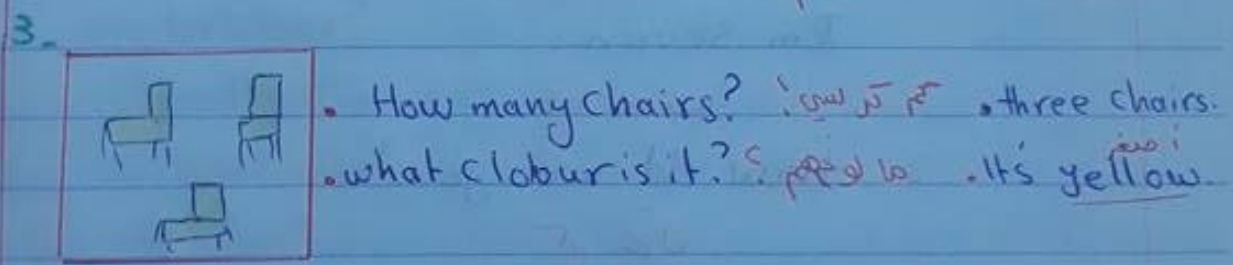 3-
• How many chairs? كم كرسي؟ • three chairs.
• what clobur is it? ما لونهم؟ • It's yellow. أصفر